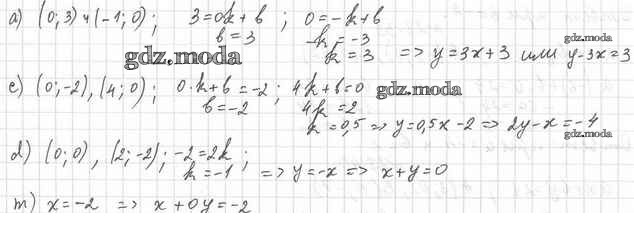 a) (0; 3) и (-1; 0); 3=0k+b; 0=-k+b
b=3 -k=-3
k=3 => y=3x+3 или y-3x=3
gdz.moda
gdz.moda
c) (0;-2), (4; 0); 0·k+b=-2; 4k+b=0
gdz.moda
b=-2 4k=2
k=0,5 => y=0,5x-2 => 2y-x=-4
gdz.moda
d) (0; 0), (2; -2); -2=2k;
k=-1 => y=-x => x+y=0
m) x=-2 => x+0y=-2